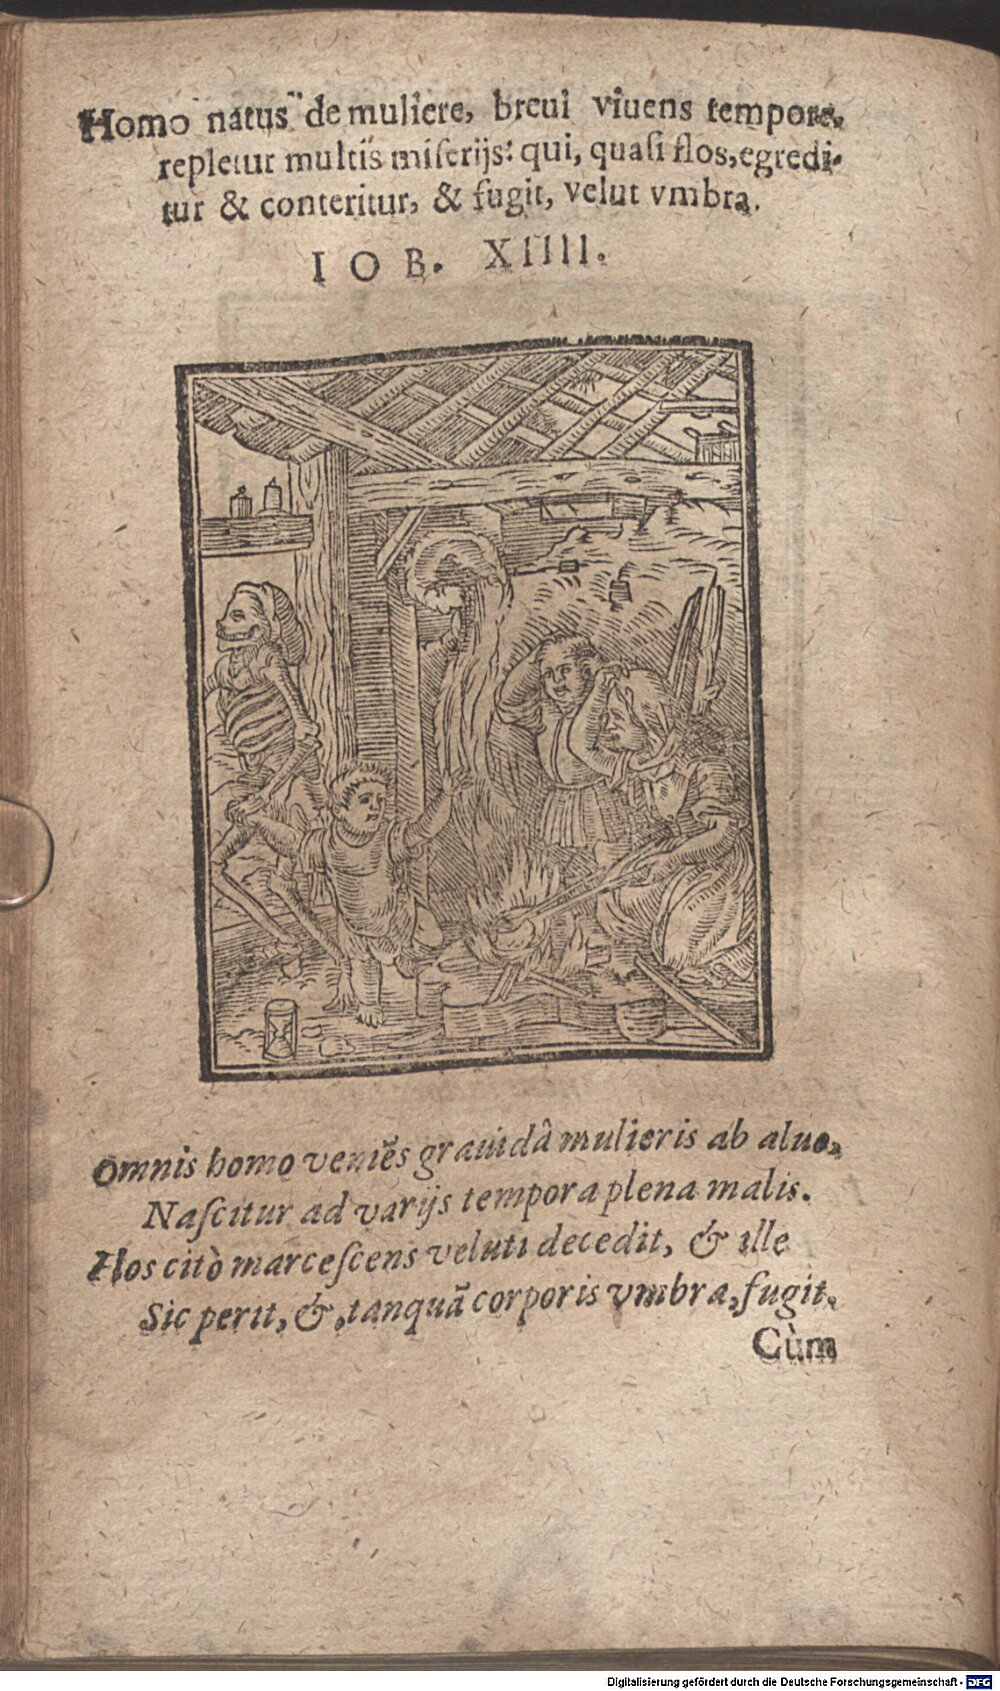 Homo natus de muliere, breui viuens tempore,
repletur multis miserijs: qui, quasi flos, egredi-
tur & conteritur, & fugit, velut vmbra.
IOB. XIIII.
Omnis homo veniẽs grauidâ mulieris ab aluo,
Nascitur ad varijs tempora plena malis.
Flos citò marcescens veluti decedit, & ille
Sic perit, &, tanquã corporis vmbra, fugit.
Cùm
Digitalisierung gefördert durch die Deutsche Forschungsgemeinschaft - DFG